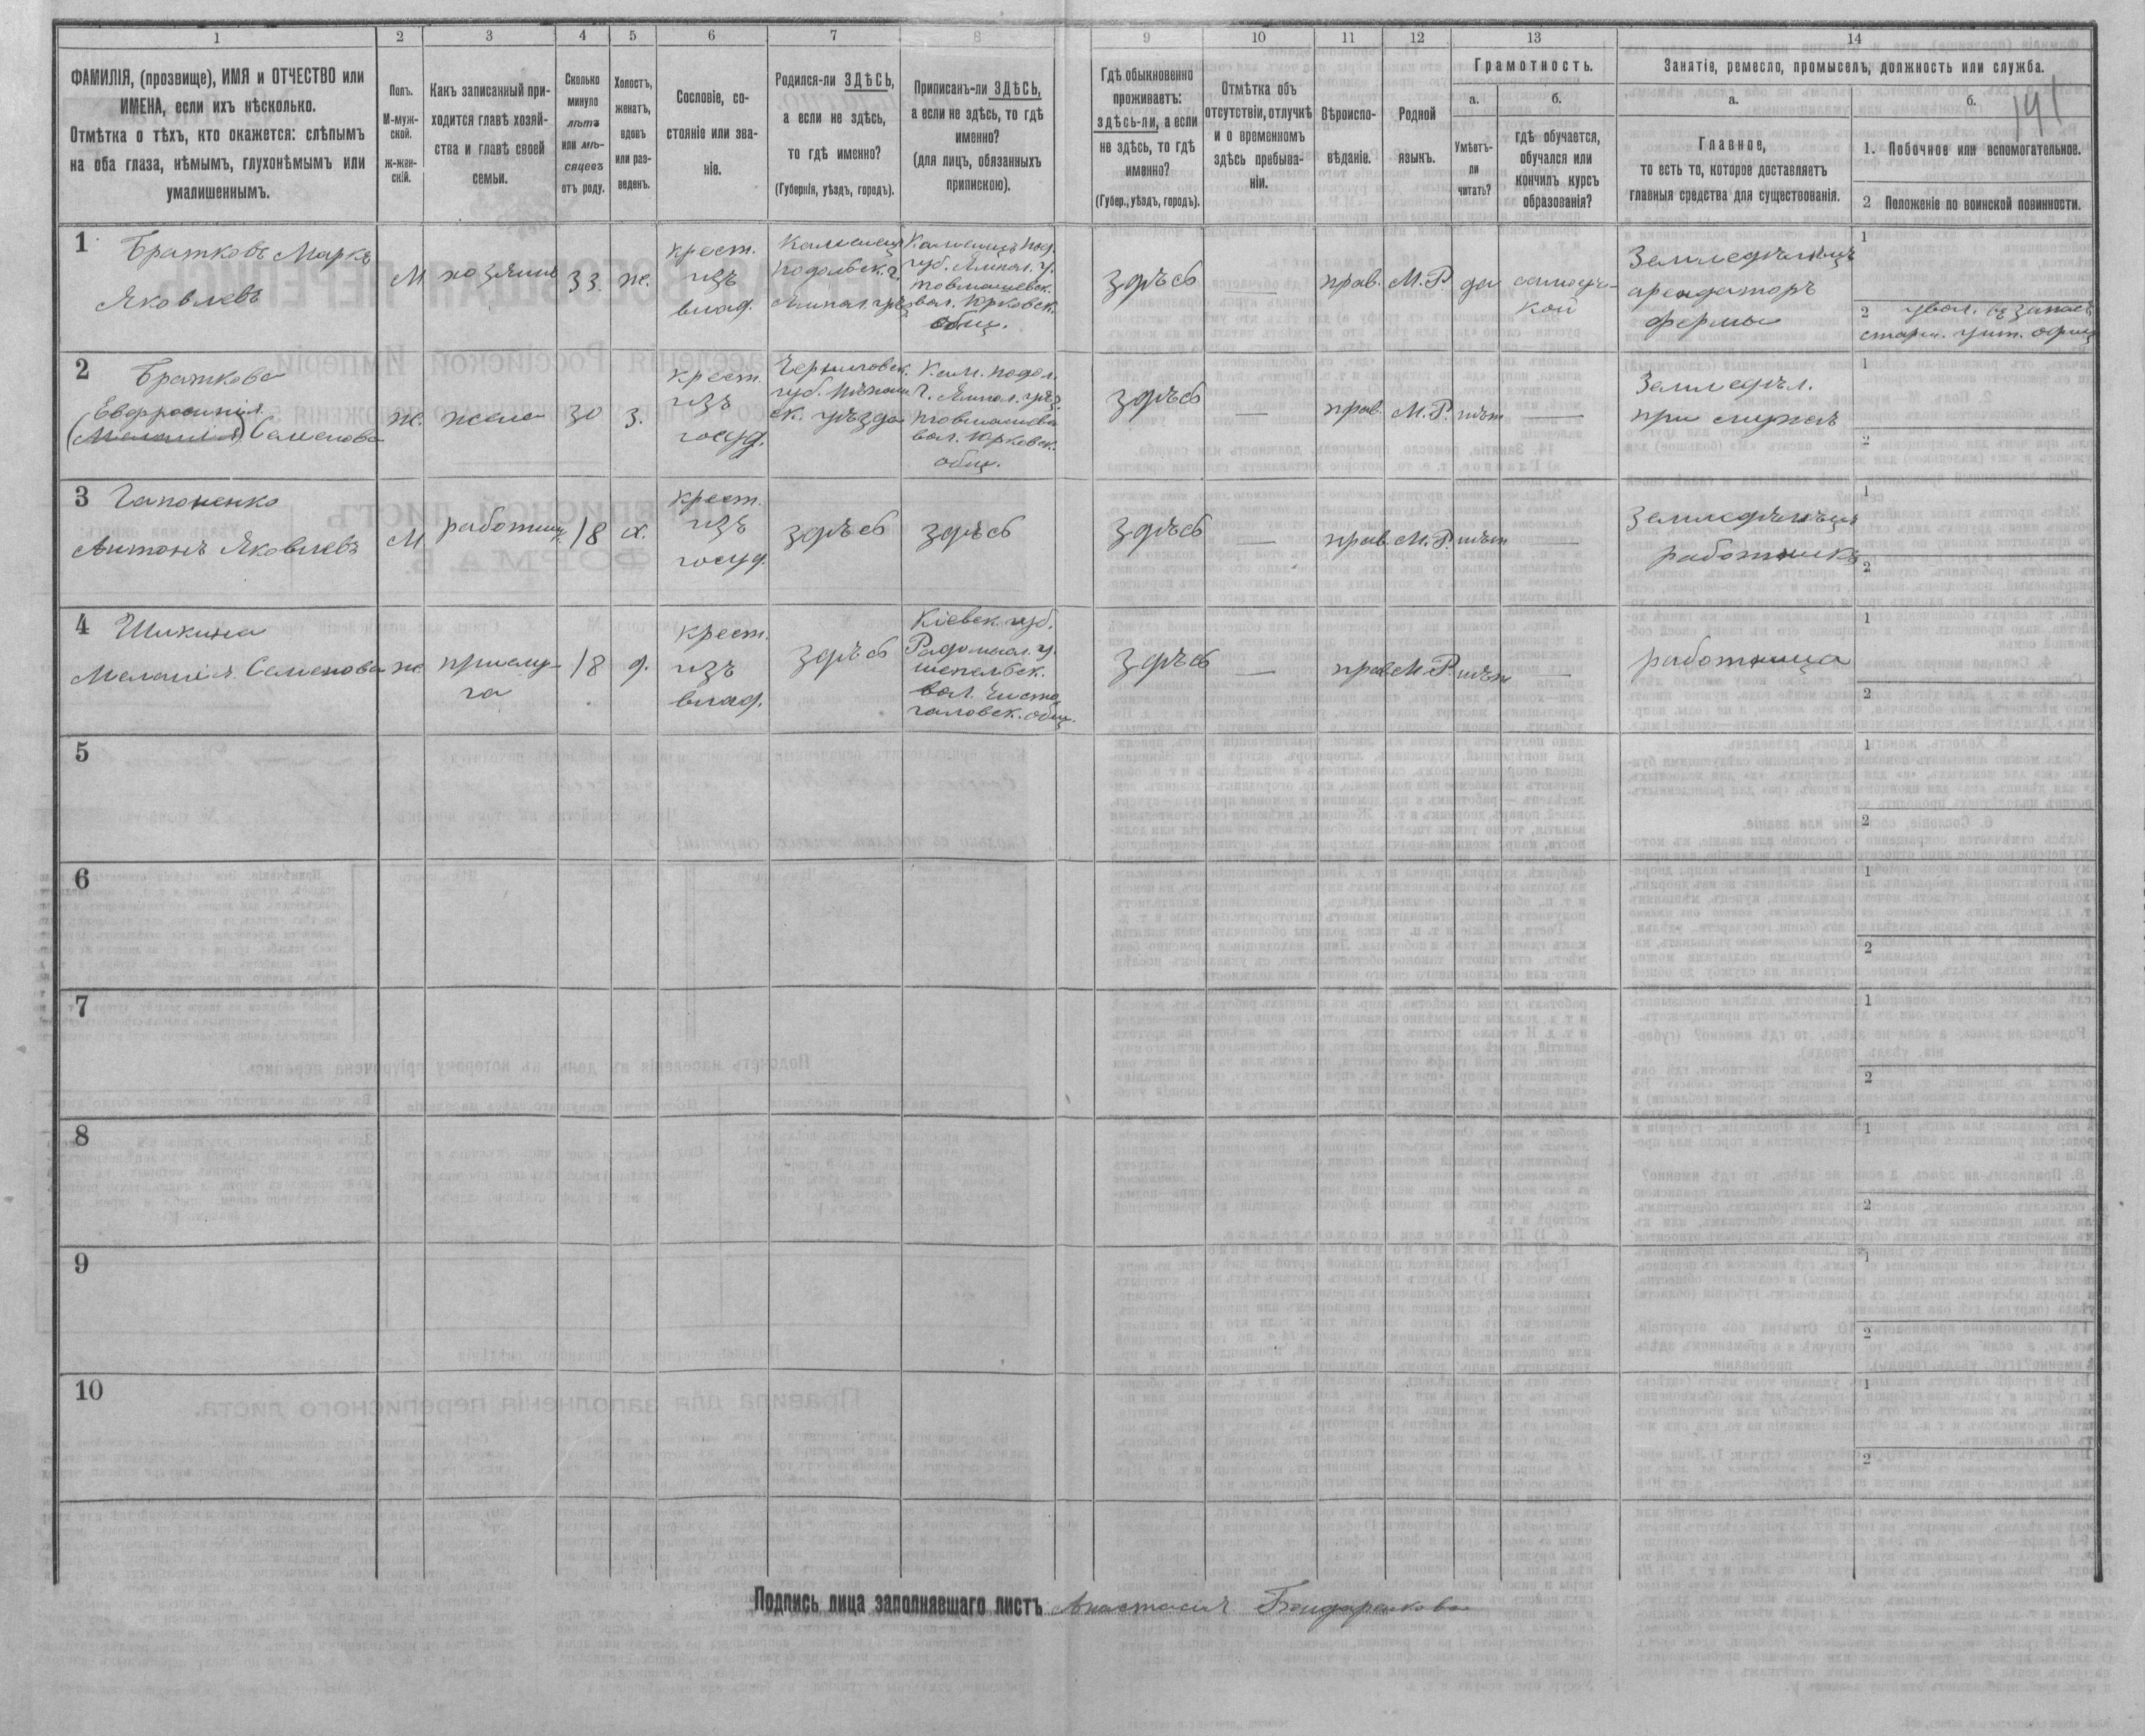 1 2 3 4 5 6 7 8 9 10 11 12 13 14
ФАМИЛІЯ, (прозвище), ИМЯ и ОТЧЕСТВО или
ИМЕНА, если ихъ нѣсколько.
Отмѣтка о тѣхъ, кто окажется: слѣпымъ
на оба глаза, нѣмымъ, глухонѣмымъ или
умалишеннымъ.
Полъ.
М-муж-
ской.
ж-жен-
скій.
Какъ записанный при-
ходится главѣ хозяй-
ства и главѣ своей
семьи.
Сколько
минуло
лѣтъ
или мѣ-
сяцевъ
отъ роду.
Холостъ,
женатъ,
вдовъ
или раз-
веденъ.
Сословіе, со-
стояніе или зва-
ніе.
Родился-ли ЗДѢСЬ,
а если не здѣсь,
то гдѣ именно?
(Губернія, уѣздъ, городъ).
Приписанъ-ли ЗДѢСЬ,
а если не здѣсь, то гдѣ
именно?
(для лицъ, обязанныхъ
припискою).
Гдѣ обыкновенно
проживаетъ:
здѣсь-ли, а если
не здѣсь, то гдѣ
именно?
(Губер., уѣздъ, городъ).
Отмѣтка объ
отсутствіи, отлучкѣ
и о временномъ
здѣсь пребыва-
ніи.
Вѣроиспо-
вѣданіе.
Родной
языкъ.
Грамотность.
а.
Умѣетъ-
ли
читать?
б.
гдѣ обучается,
обучался или
кончилъ курсъ
образованія?
Занятіе, ремесло, промыселъ, должность или служба.
а.
Главное,
то есть то, которое доставляетъ
главныя средства для существованія.
б.
191
1. Побочное или вспомогательное.
2 Положеніе по воинской повинности.
1
Братковъ Маркъ
Яковлевъ
М
хозяинъ
33.
ж.
крест.
изъ
влад.
Каменец
подольск. г.
Ямпол. уѣз
Каменец. под.
губ. Ямпол. у.
вол. Юрковск.
общ.
здѣсь
—
прав.
М.Р.
да
самоуч-
кой
Земледѣлецъ
арендаторъ
фермы
1
2 увол. въ запасъ
старш. унт. офиц
2
Браткова
Евфросинія
(Меланія) Семенова
ж.
жена
30
з.
крест.
изъ
госуд.
Черниговск.
губ.
ск. уѣзда
Кам. подол.
г. Ямпол. уѣз.
вол. Юрковск.
общ.
здѣсь
—
прав.
М.Р.
нѣт
—
Земледѣл.
при мужѣ
1
2
3 Гапоненко
Антонъ Яковлевъ
М
работник
18
х.
крест.
изъ
госуд.
здѣсь
здѣсь
здѣсь
—
прав.
М.Р.
нѣт
—
Земледѣлецъ
работникъ
1
2
4 Шикина
Меланія Семенова
ж
прислу-
га
18
д.
крест.
изъ
влад.
здѣсь
Кіевск. губ.
Радомысл. у.
шепелвск.
вол. Чисто
галовск. общ.
здѣсь
—
прав
М.Р.
нѣт
—
работница
1
2
5
1
2
6
1
2
7
1
2
8
1
2
9
1
2
10
1
2
Подпись лица заполнявшаго листъ Анастасія Бондаренкова